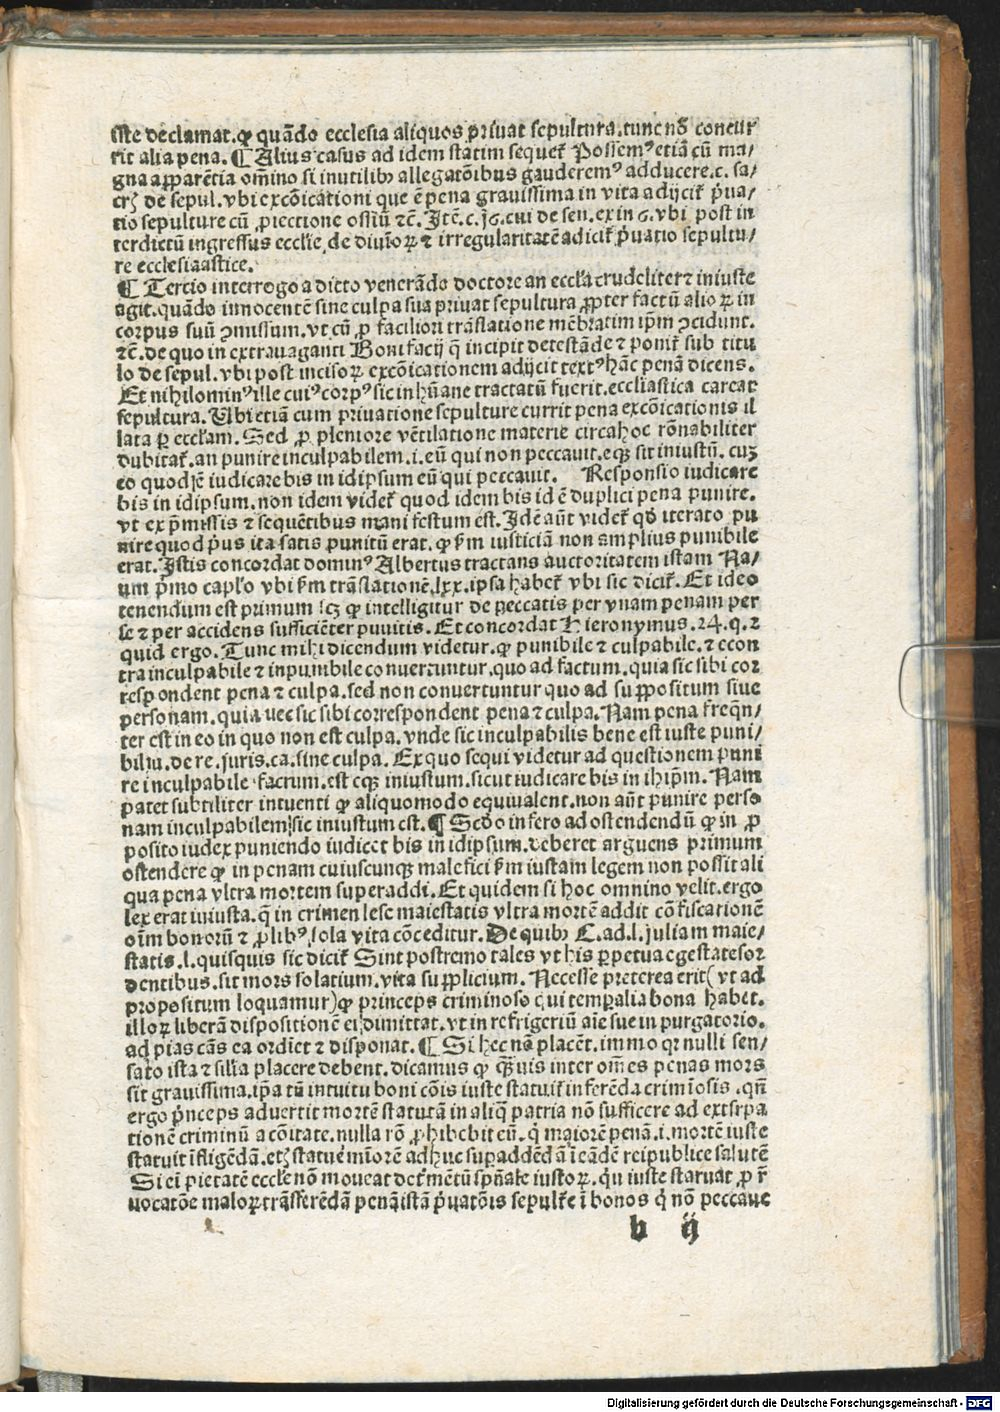 iste declamat. ꝙ quādo ecclesia aliquos priuat sepultura. tunc nō concur
rit alia pena. ¶ Alius casus ad idem statim sequet᷑ Possemꝰ etiā cū ma/
gna apparētia om̄ino si inutilibꝫ allegatōibus gauderemꝰ adducere. c. sa/
crꝫ de sepul. vbi excōicationi que ē pena grauissima in vita adijcit᷑ p̄ua/
tio sepulture cū ꝓiectione ossiū ⁊c̄. Itē. c. j6. cui de sen. ex in 6. vbi post in
terdictū ingressus ecclīe, de diuīoꝝ ⁊ irregularitatē adicit᷑ p̄uatio sepultu/
re ecclesiaastice.
¶ Tercio interrogo a dicto venerādo doctore an eccl̄a crudeliter ⁊ iniuste
agit. quādo innocentē sine culpa sua priuat sepultura ꝓpter factū alioꝝ in
corpus suū ꝯmissum. vt cū ꝓ faciliori trāslatione mēbratim ip̄m ꝯcidunt.
⁊c̄. de quo in extrauaganti Bonifacij q̄ incipit detestāde ⁊ ponit᷑ sub titu
lo de sepul. vbi post incisoꝝ excōicationem adijcit textꝰ hāc penā dicens.
Et nihilominꝰ ille cuiꝰ corpꝰ sic inhūane tractatū fuerit. eccl̄iastica careat
sepultura. Ubi etiā cum priuatione sepulture currit pena excōicationis il
lata ꝑ eccl̄am. Sed ꝓ pleniore vētilatione materie circa hoc rōnabiliter
dubitat᷑. an punire inculpabilem. i. eū qui non peccauit. eqꝫ sit iniustū. cuꝫ
eo quod ē iudicare bis in idipsum eū qui peccauit. Responsio iudicare
bis in idipsum. non idem videt᷑ quod idem bis id ē duplici pena punire.
vt ex p̄missis ⁊ sequētibus manifestum est. Idē aūt videt᷑ qd̄ iterato pu
nire quod p̄us ita satis punitū erat. ꝙ ẜm iusticiā non amplius punibile
erat. Istis concordat dominꝰ Albertus tractans auctoritatem istam Na/
um p̄mo capl̄o vbi ẜm trāslationē. lxx. ipsa habet᷑ vbi sic dicit᷑. Et ideo
tenendum est primum scꝫ ꝙ intelligitur de peccatis per vnam penam per
se ⁊ per accidens sufficiēter punitis. Et concordat Hieronymus. 24. q. 2
quid ergo. Tunc mihi dicendum videtur. ꝙ punibile ⁊ culpabile. ⁊ econ
tra inculpabile ⁊ inpunibile conuertuntur. quo ad factum. quia sic sibi cor
respondent pena ⁊ culpa. sed non conuertuntur quo ad suppositum siue
personam. quia nec sic sibi correspondent pena ⁊ culpa. Nam pena freq̄n/
ter est in eo in quo non est culpa. vnde sic inculpabilis bene est iuste puni/
bilis. de re. juris. ca. sine culpa. Ex quo sequi videtur ad questionem puni
re inculpabile factum. est eqꝫ iniustum. sicut iudicare bis in ihip̄m. Nam
patet subtiliter intuenti ꝙ aliquomodo equiualent. non aūt punire perso
nam inculpabilem, sic iniustum est. ¶ Sedo infero ad ostendendū ꝙ in ꝓ
posito iudex puniendo iudicet bis in idipsum. deberet arguens primum
ostendere ꝙ in penam cuiuscunqꝫ malefici ẜm iustam legem non possit ali
qua pena vltra mortem superaddi. Et quidem si hoc omnino velit. ergo
lex erat iniusta. q̄ in crimen lese maiestatis vltra mortē addit cōfiscationē
oīm bonorū ⁊ ꝓlibꝰ, sola vita cōceditur. De quibꝫ C. ad. l. juliam maie/
statis. l. quisquis sic dicit᷑ Sint postremo tales vt his ꝑpetua egestate sor
dentibus. sit mors solatium. vita supplicium. Necesse preterea erit (vt ad
propositum loquamur) ꝙ princeps criminoso qui temꝑalia bona habet.
illoꝝ liberā dispositionē ei dimittat. vt in refrigeriū aīe sue in purgatorio.
ad pias cās ea ordīet ⁊ disponat. ¶ Si hec nō placēt. immo qꝛ nulli sen/
sato ista ⁊ sil̄ia placere debent. dicamus ꝙ qꝙuis inter om̄es penas mors
sit grauissima. ip̄a tū intuitu boni cōis iuste statuit᷑ inferēda crimīosis. qn̄
ergo p̄nceps aduertit mortē statutā in aliq̄ patria nō sufficere ad extsrpa
tionē criminū a cōitate. nulla rō ꝓhibebit eū. q̇ maiorē penā. i. mortē iuste
statuit īfligēdā. etꝫ statuēt mīorē adhuc supaddēdā ī eādē reipublice salutē
Si eī pietatē eccl̄e nō moueat detᷓmētū spūale iustoꝝ. qn̄ iuste statuat ꝓ r̄
uocatōe maloꝝ trāsferēdā penā istā p̄uatōis sepult᷑e ī bonos q̇ nō peccaue
b ij
Digitalisierung gefördert durch die Deutsche Forschungsgemeinschaft - DFG